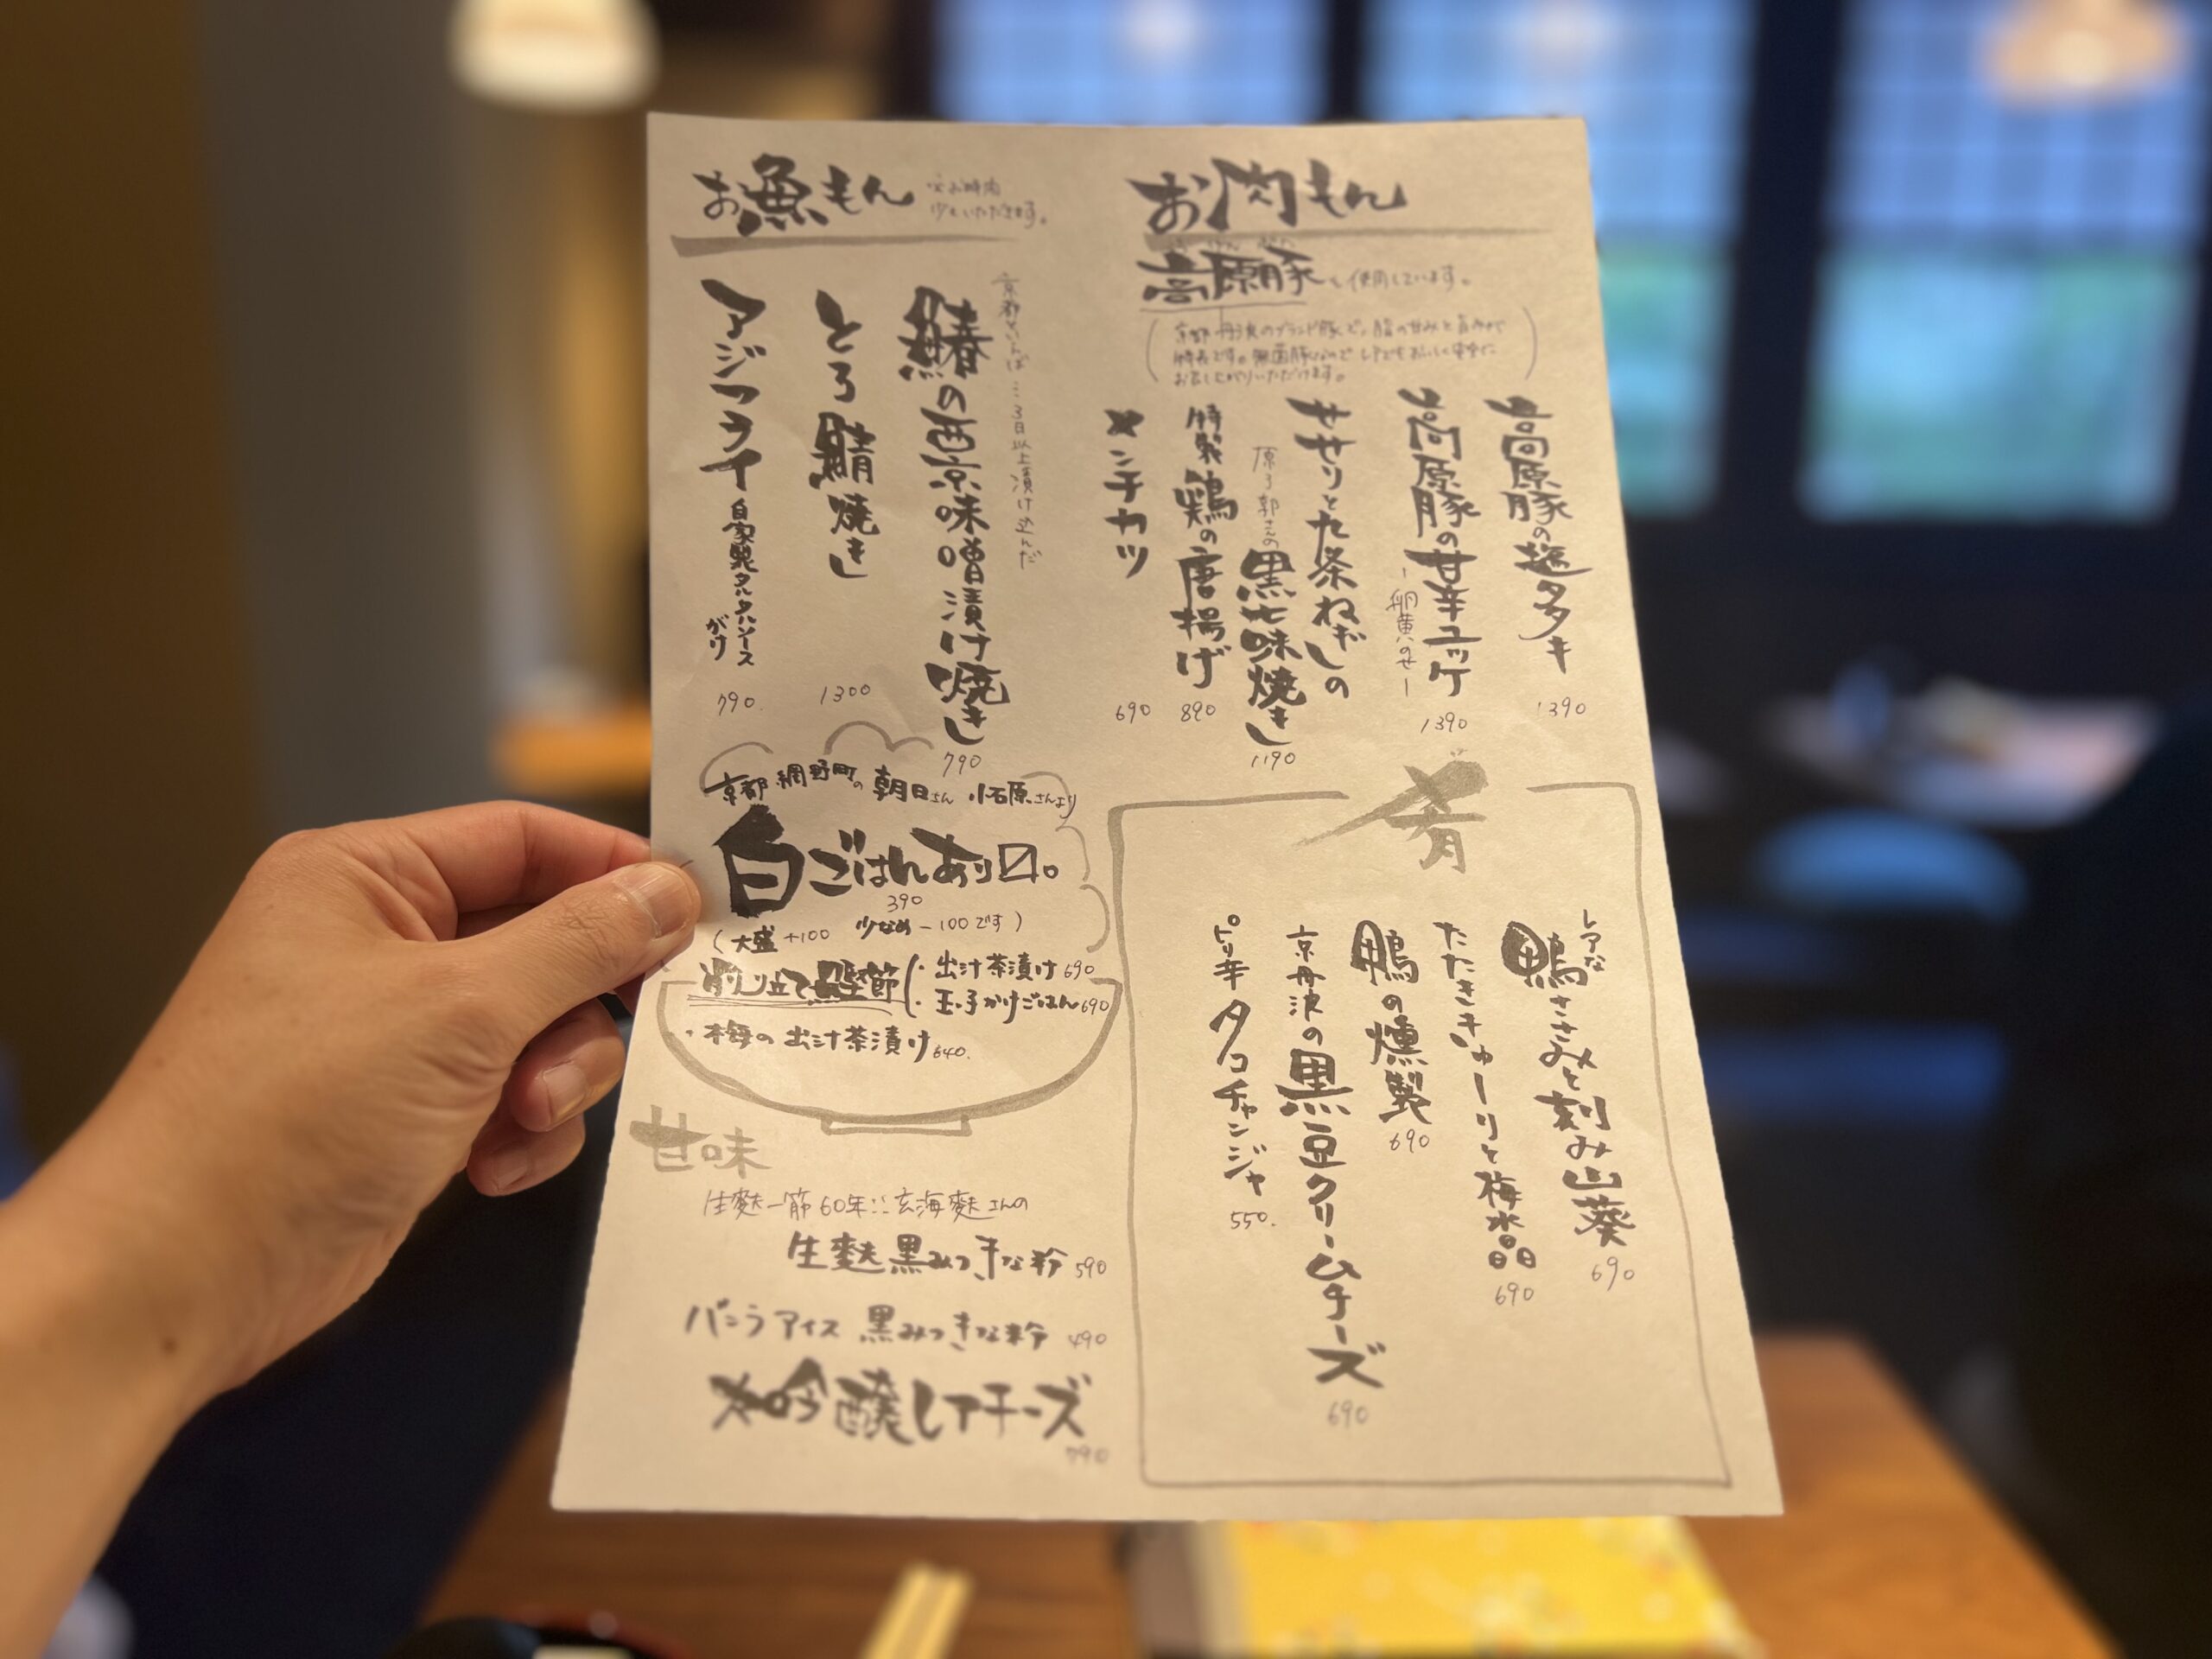 お肉もん
高原豚を使用しています。
京都丹波のブランド豚で、脂の甘みと旨みが
特長です。無菌豚なのでレアでもおいしく安全に
お召し上がりいただけます。
高原豚の塩タタキ
1390
高原豚の甘辛ユッケ
-卵黄のせ-
1390
せせりと九条ねぎの
原了郭さんの黒七味焼き
1190
特製鶏の唐揚げ
890
メンチカツ
690
お魚もん
少々お時間
いただきます。
京都といえば…3日以上漬け込んだ
鰆の西京味噌漬け焼き
790
とろ鯖焼き
1300
アジフライ
自家製タルタルソース
がけ
790.
京都 網野町の 朝日さん 小石原さんより
白ごはんあり〼。
390
(大盛+100 少なめ-100です)
削り立て鰹節
・出汁茶漬け690
・玉子かけごはん690
・梅の出汁茶漬け640.
甘味
生麩一筋60年…玄海麩さんの
生麩黒みつきな粉 590
バニラアイス 黒みつきな粉 490
大吟醸レアチーズ
790
肴
レアな
鴨ささみと刻み山葵
690
たたききゅーりと梅水晶
690
鴨の燻製
690
京丹波の黒豆クリームチーズ
690
ピリ辛タコチャンジャ
550.